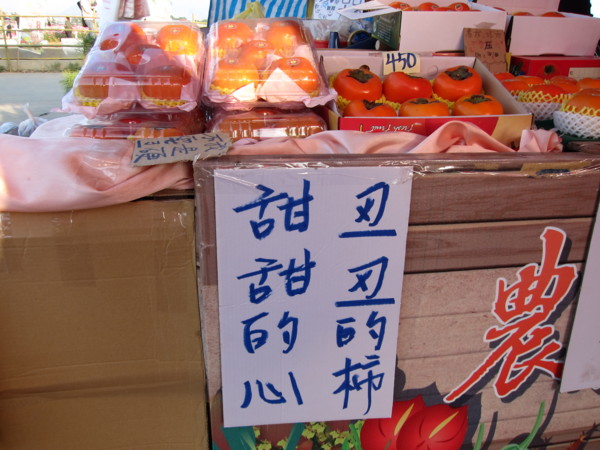 450
丑丑的柿
甜甜的心
農